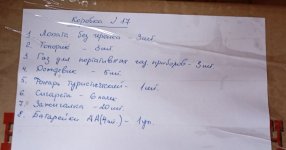 Коробка №17
1 Лопата без черенка - 3шт.
2 Топорик - 5шт.
3 Газ для портативных газ. приборов - 3шт.
4 - 6шт.
5. Фонарь туристический - 1шт.
6 Сигареты - 6 пачек
7. Зажигалка - 20шт.
8. Батарейки АА(4шт.) - 1уп.